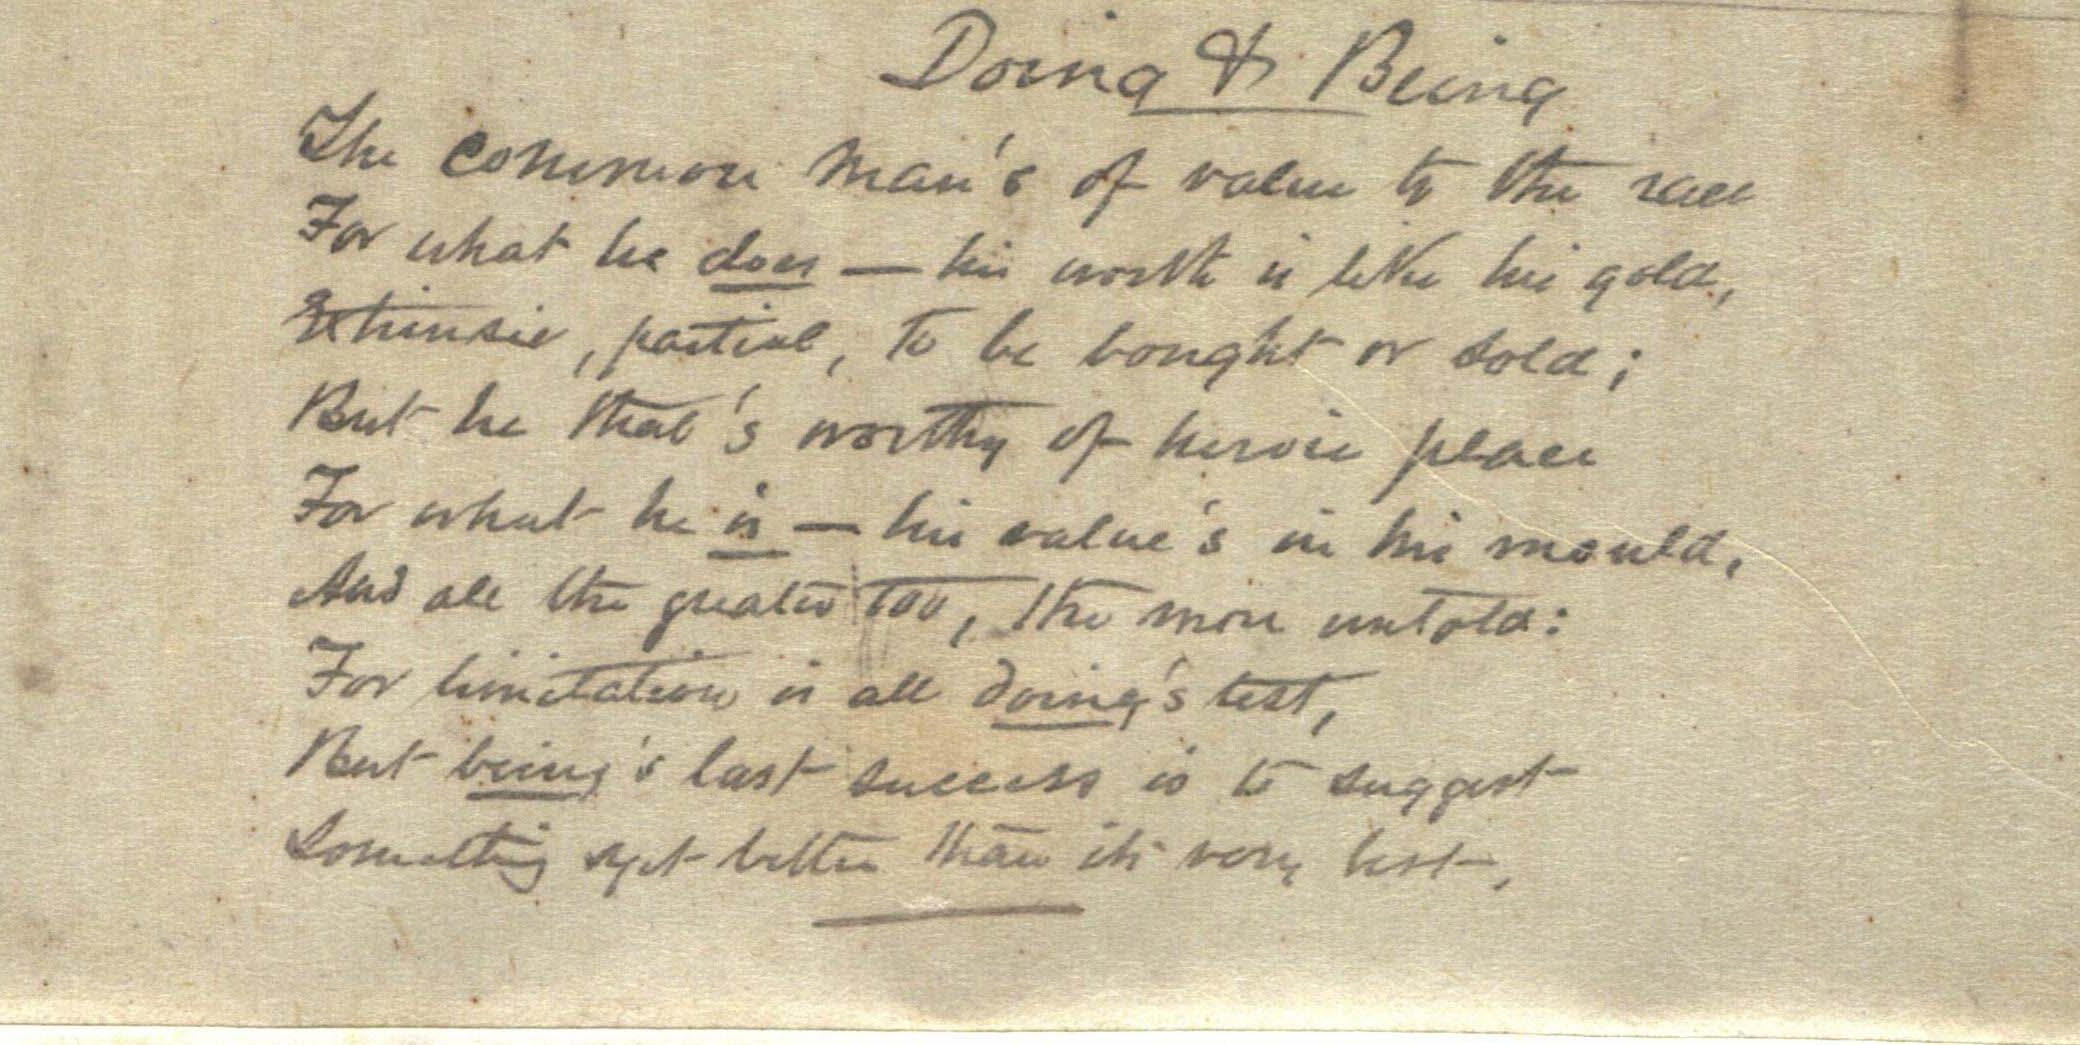 Doing & Being
The common man's of value to the race
For what he does — his worth is like his gold,
Extrinsic, partial, to be bought or sold;
But he that's worthy of heroic place
For what he is — his value's in his mould,
And all the greater too, the more untold:
For limitation is all doing's test,
But being's last success is to suggest
Something yet better than its very best.